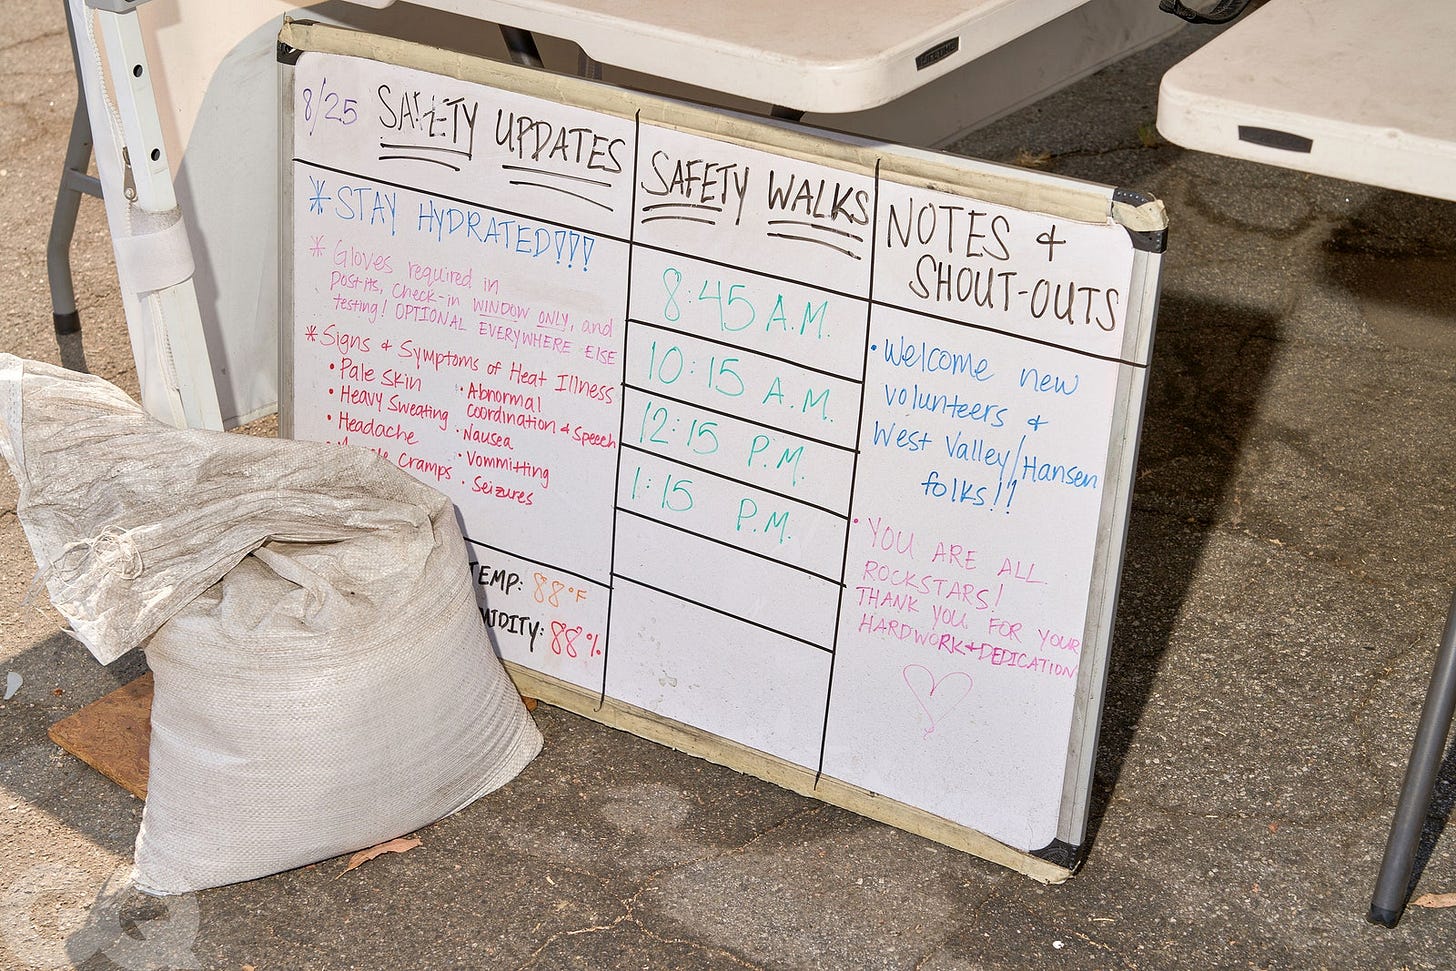 8/25 SAFETY UPDATES
*STAY HYDRATED!!!
* Gloves required in
post-its, check-in WINDOW ONLY, and
testing! OPTIONAL EVERYWHERE ELSE
* Signs & Symptoms of Heat Illness
• Pale Skin
• Heavy Sweating
• Headache
Cramps
• Abnormal
coordination & Speech
• Nausea
• Vommitting
• Seizures
TEMP: 88°F
88%
SAFETY WALKS
8:45 A.M.
10:15 A.M.
12:15 P.M.
1:15 P.M.
NOTES &
SHOUT-OUTS
• Welcome new
volunteers &
West Valley/Hansen
folks!!
• YOU ARE ALL
ROCKSTARS!
THANK YOU FOR YOUR
HARDWORK + DEDICATION
LIFETIME